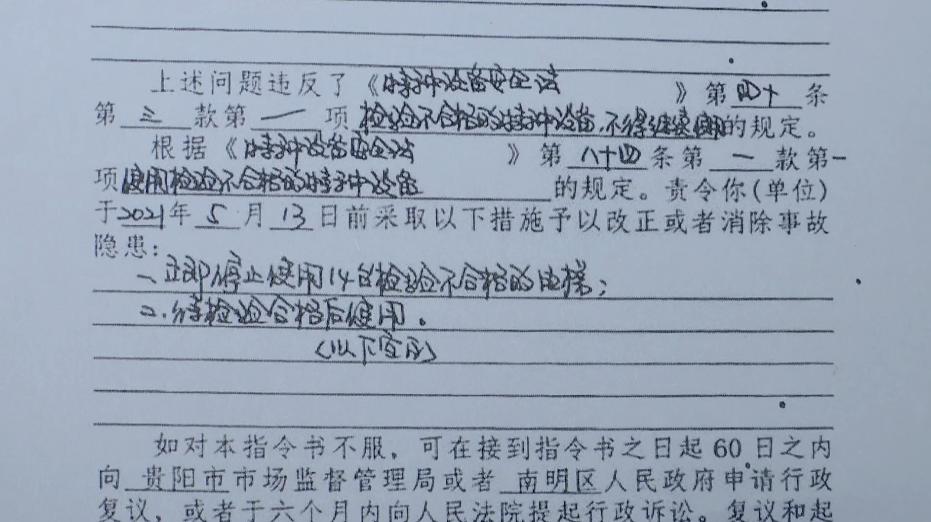 上述问题违反了《特种设备安全法》第四十条
第三款第一项检验不合格的特种设备,不得继续使用的规定。
根据《特种设备安全法》第八十四条第一款第一
项使用检验不合格的特种设备的规定。责令你(单位)
于2021年5月13日前采取以下措施予以改正或者消除事故
隐患:
一、立即停止使用14台检验不合格的电梯;
二、待检验合格后使用。
(以下空白)
如对本指令书不服,可在接到指令书之日起60日之内
向贵阳市市场监督管理局或者南明区人民政府申请行政
复议,或者于六个月内向人民法院提起行政诉讼。复议和起